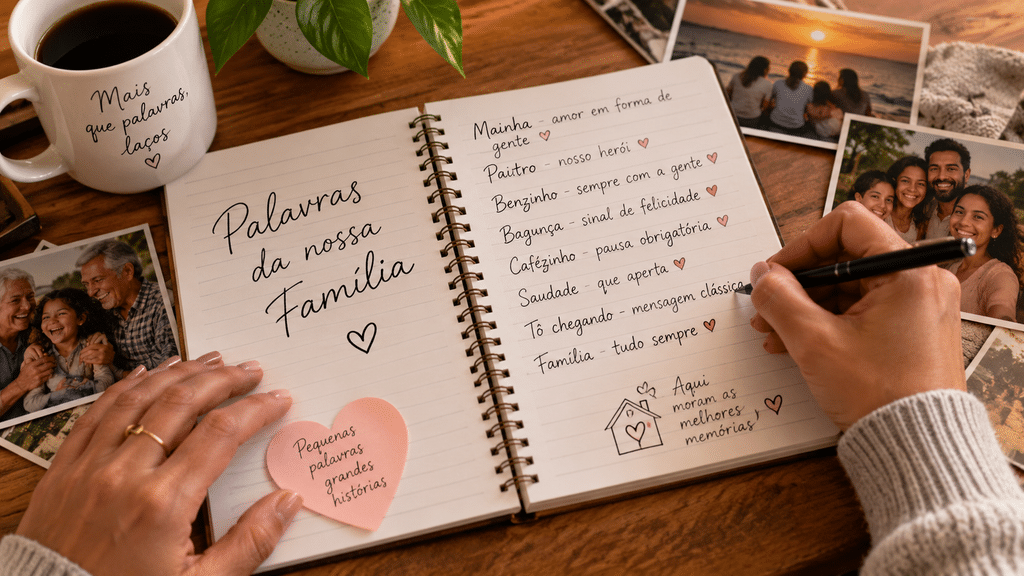 Mais
que palavras,
laços
Palavras
da nossa
Família
Pequenas
palavras
grandes
histórias
Mainha - amor em forma de
gente
Paitro - nosso herói
Benzinho - sempre com a gente
Bagunça - sinal de felicidade
Cafézinho - pausa obrigatória
Saudade - que aperta
Tô chegando - mensagem clássica
Família - tudo sempre
Aqui
moram as
melhores
memórias,